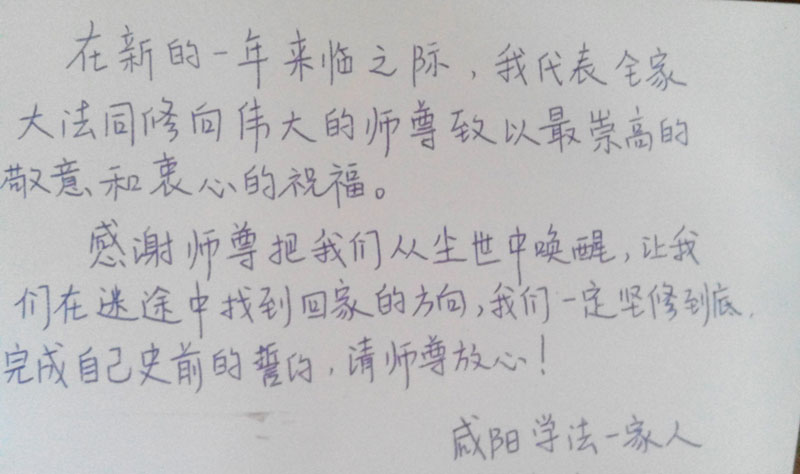 在新的一年来临之际，我代表全家
大法同修向伟大的师尊致以最崇高的
敬意和衷心的祝福。
感谢师尊把我们从尘世中唤醒，让我
们在迷途中找到回家的方向，我们一定坚修到底，
完成自己史前的誓约，请师尊放心！
咸阳学法一家人